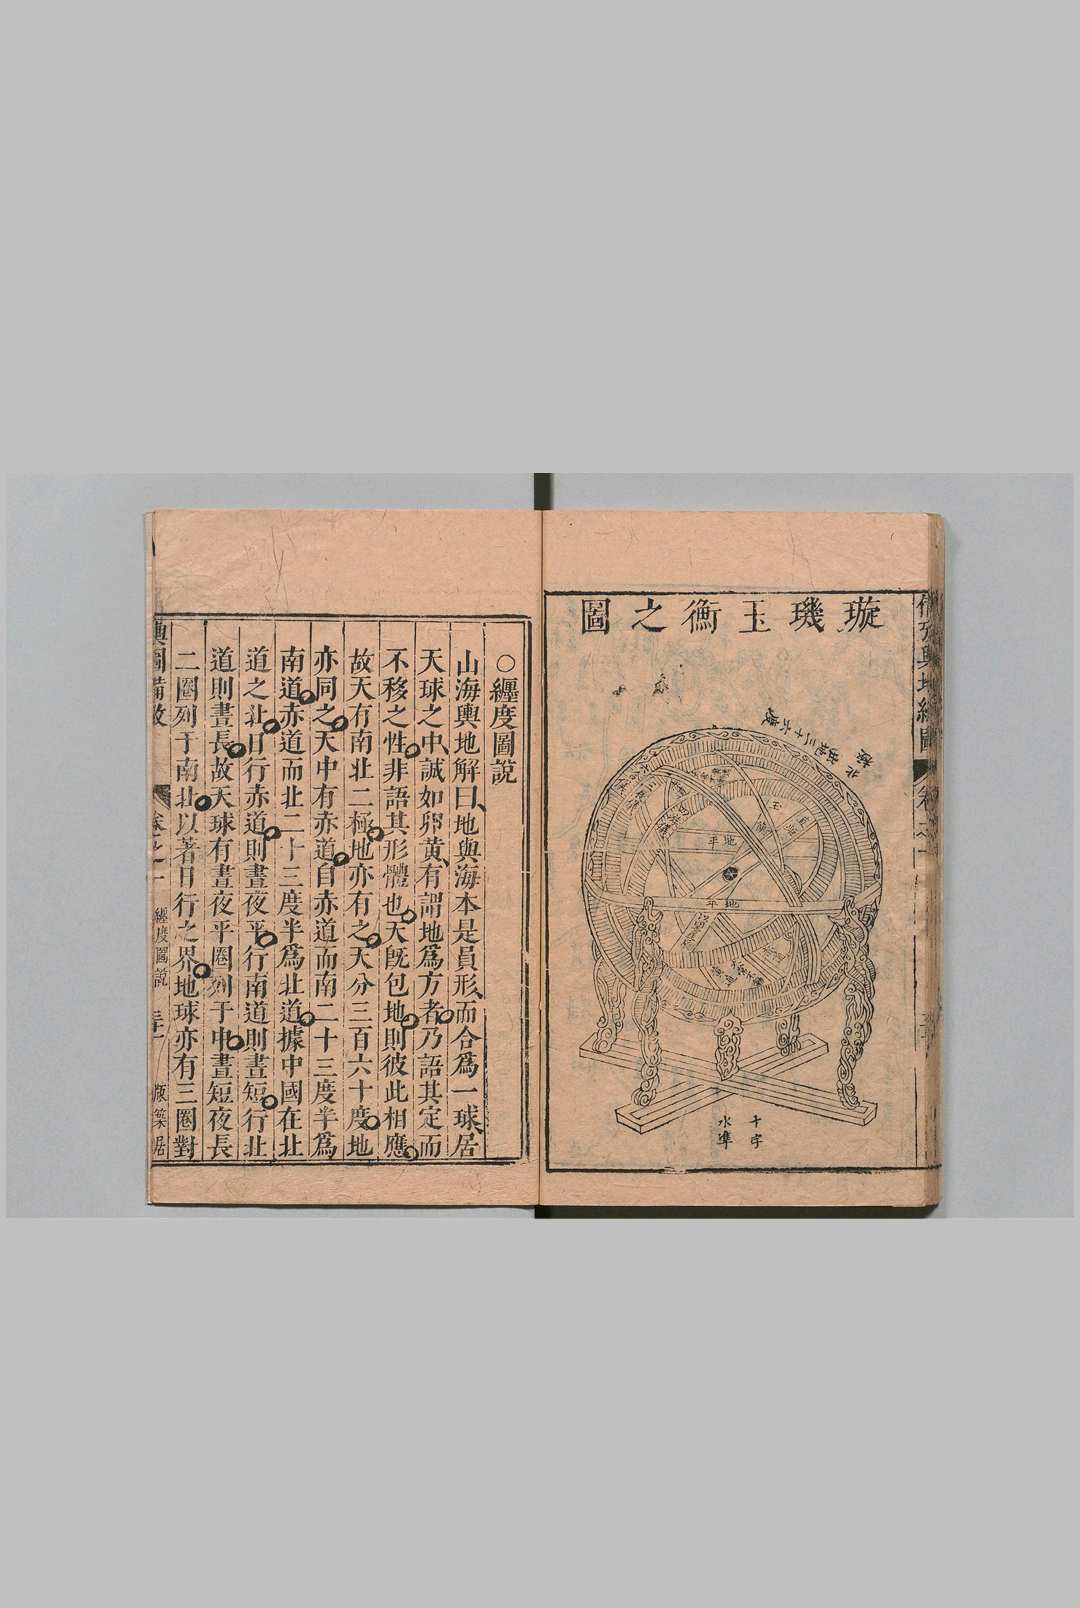 璇璣玉衡之圖
北極出地三十六度
地平
地平
十字
水準
○纏度圖說
山海輿地解曰地與海本是員形而合爲一球居
天球之中誠如卵黃有謂地爲方者乃語其定而
不移之性非語其形體也天旣包地則彼此相應
故天有南北二極地亦有之天分三百六十度地
亦同之天中有赤道自赤道而南二十三度半爲
南道赤道而北二十三度半爲北道據中國在北
道之北日行赤道則晝夜平行南道則晝短行北
道則晝長故天球有晝夜平圈列于中晝短夜長
二圈列于南北以著日行之界地球亦有三圈對
輿圖備攷
卷之一
纏度圖說
版築居